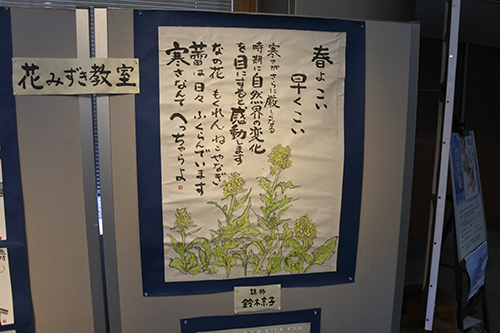 花みずき教室
春よこい
早くこい
寒さがさらに厳しくなる
時期に自然界の変化
を目にすると感動します
なの花 もくれん ねこやなぎ
蕾は日々 ふくらんでいます
寒さなんて へっちゃらよ
講師
鈴木京子